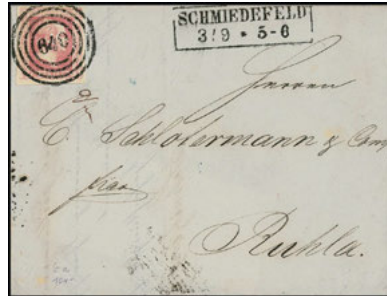 SCHMIEDEFELD
3/9 • 5-6
Herren
C. Schlotermann & Comp
frco
Ruhla.